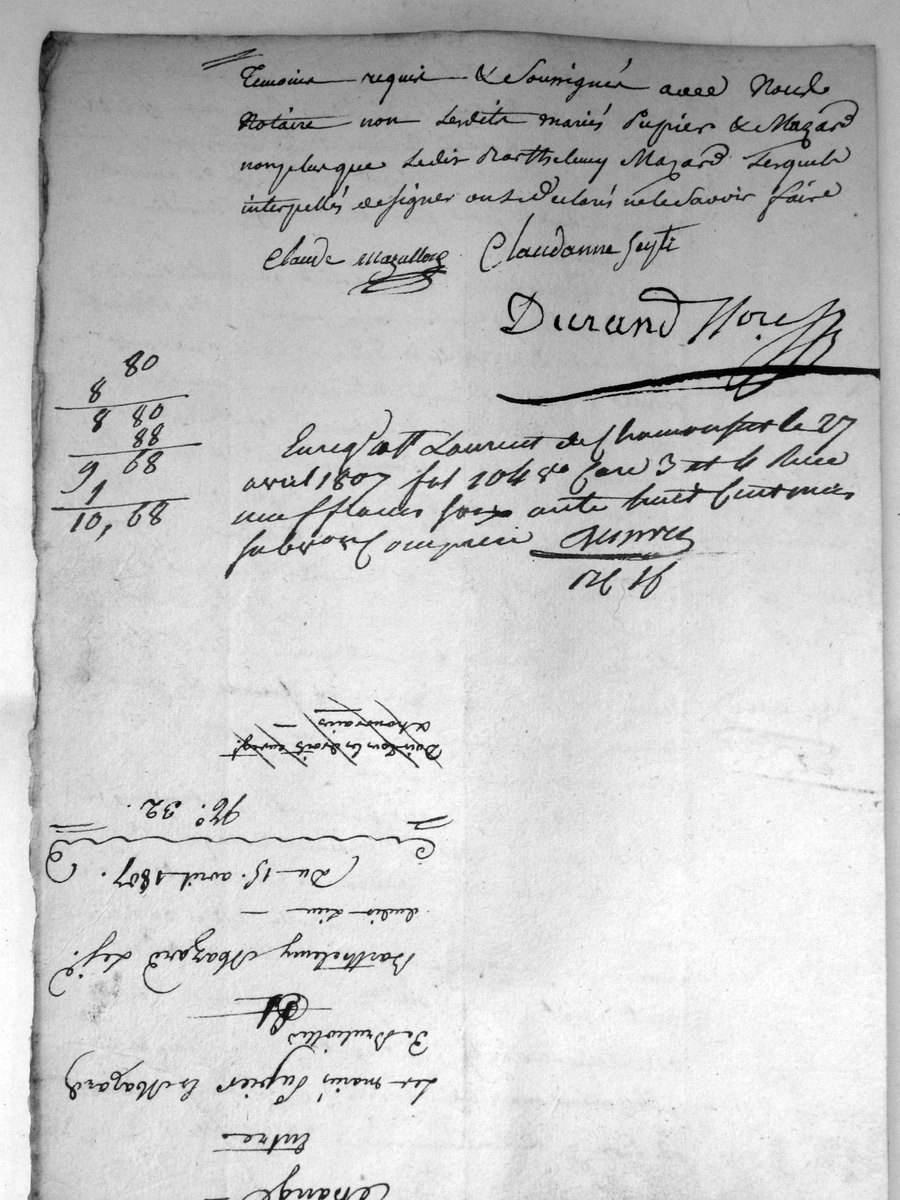 Temoins requis & soussignés avec Nous
Notaire non lesdits mariés Pupier & Mazard
nonplusque ledit Barthelemy Mazard lesquels
interpellés designer ont declaré ne le savoir faire
Claude Mazallon Claudanne Seyti
Durand Nore
80
8
8 80
88
9 68
1
10, 68
Enregt. a St Laurent de Chamousset le 27
avril 1807 fol 104 vo Case 3 et 4 Reçu
neuf francs soixante huit Centimes
subvon Comprise
Echange
Entre
Les mariés Pupier & Mazard
De Brulliolles
Et
Barthelemy Mazard
dudit Lieu
Du 15. avril 1807.
No. 32.
Doit tous les droits enregt.
& honoraires